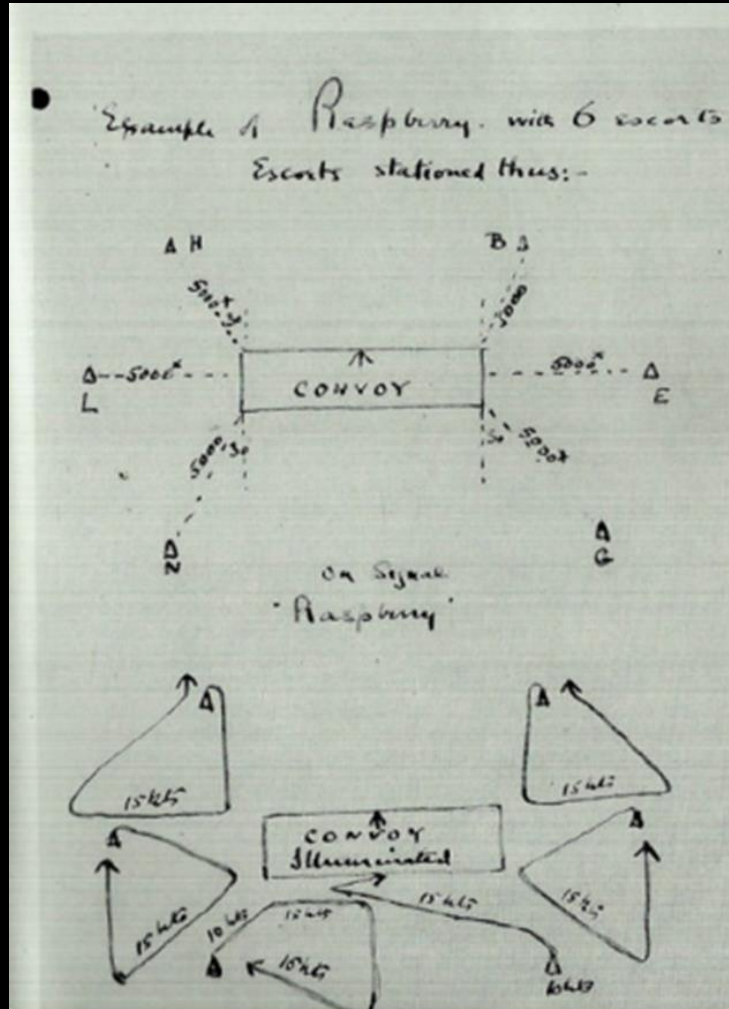 Example of Raspberry. with 6 escorts
Escorts stationed thus:-
H B
5000x 5000
5000x CONVOY 5000x
L E
5000 30 5000x
N G
On Signal
"Raspberry"
15 kts 15 kts
CONVOY
Illuminated
15 kts 10 kts 15 kts 15 kts 15 kts
15 kts
10 kts